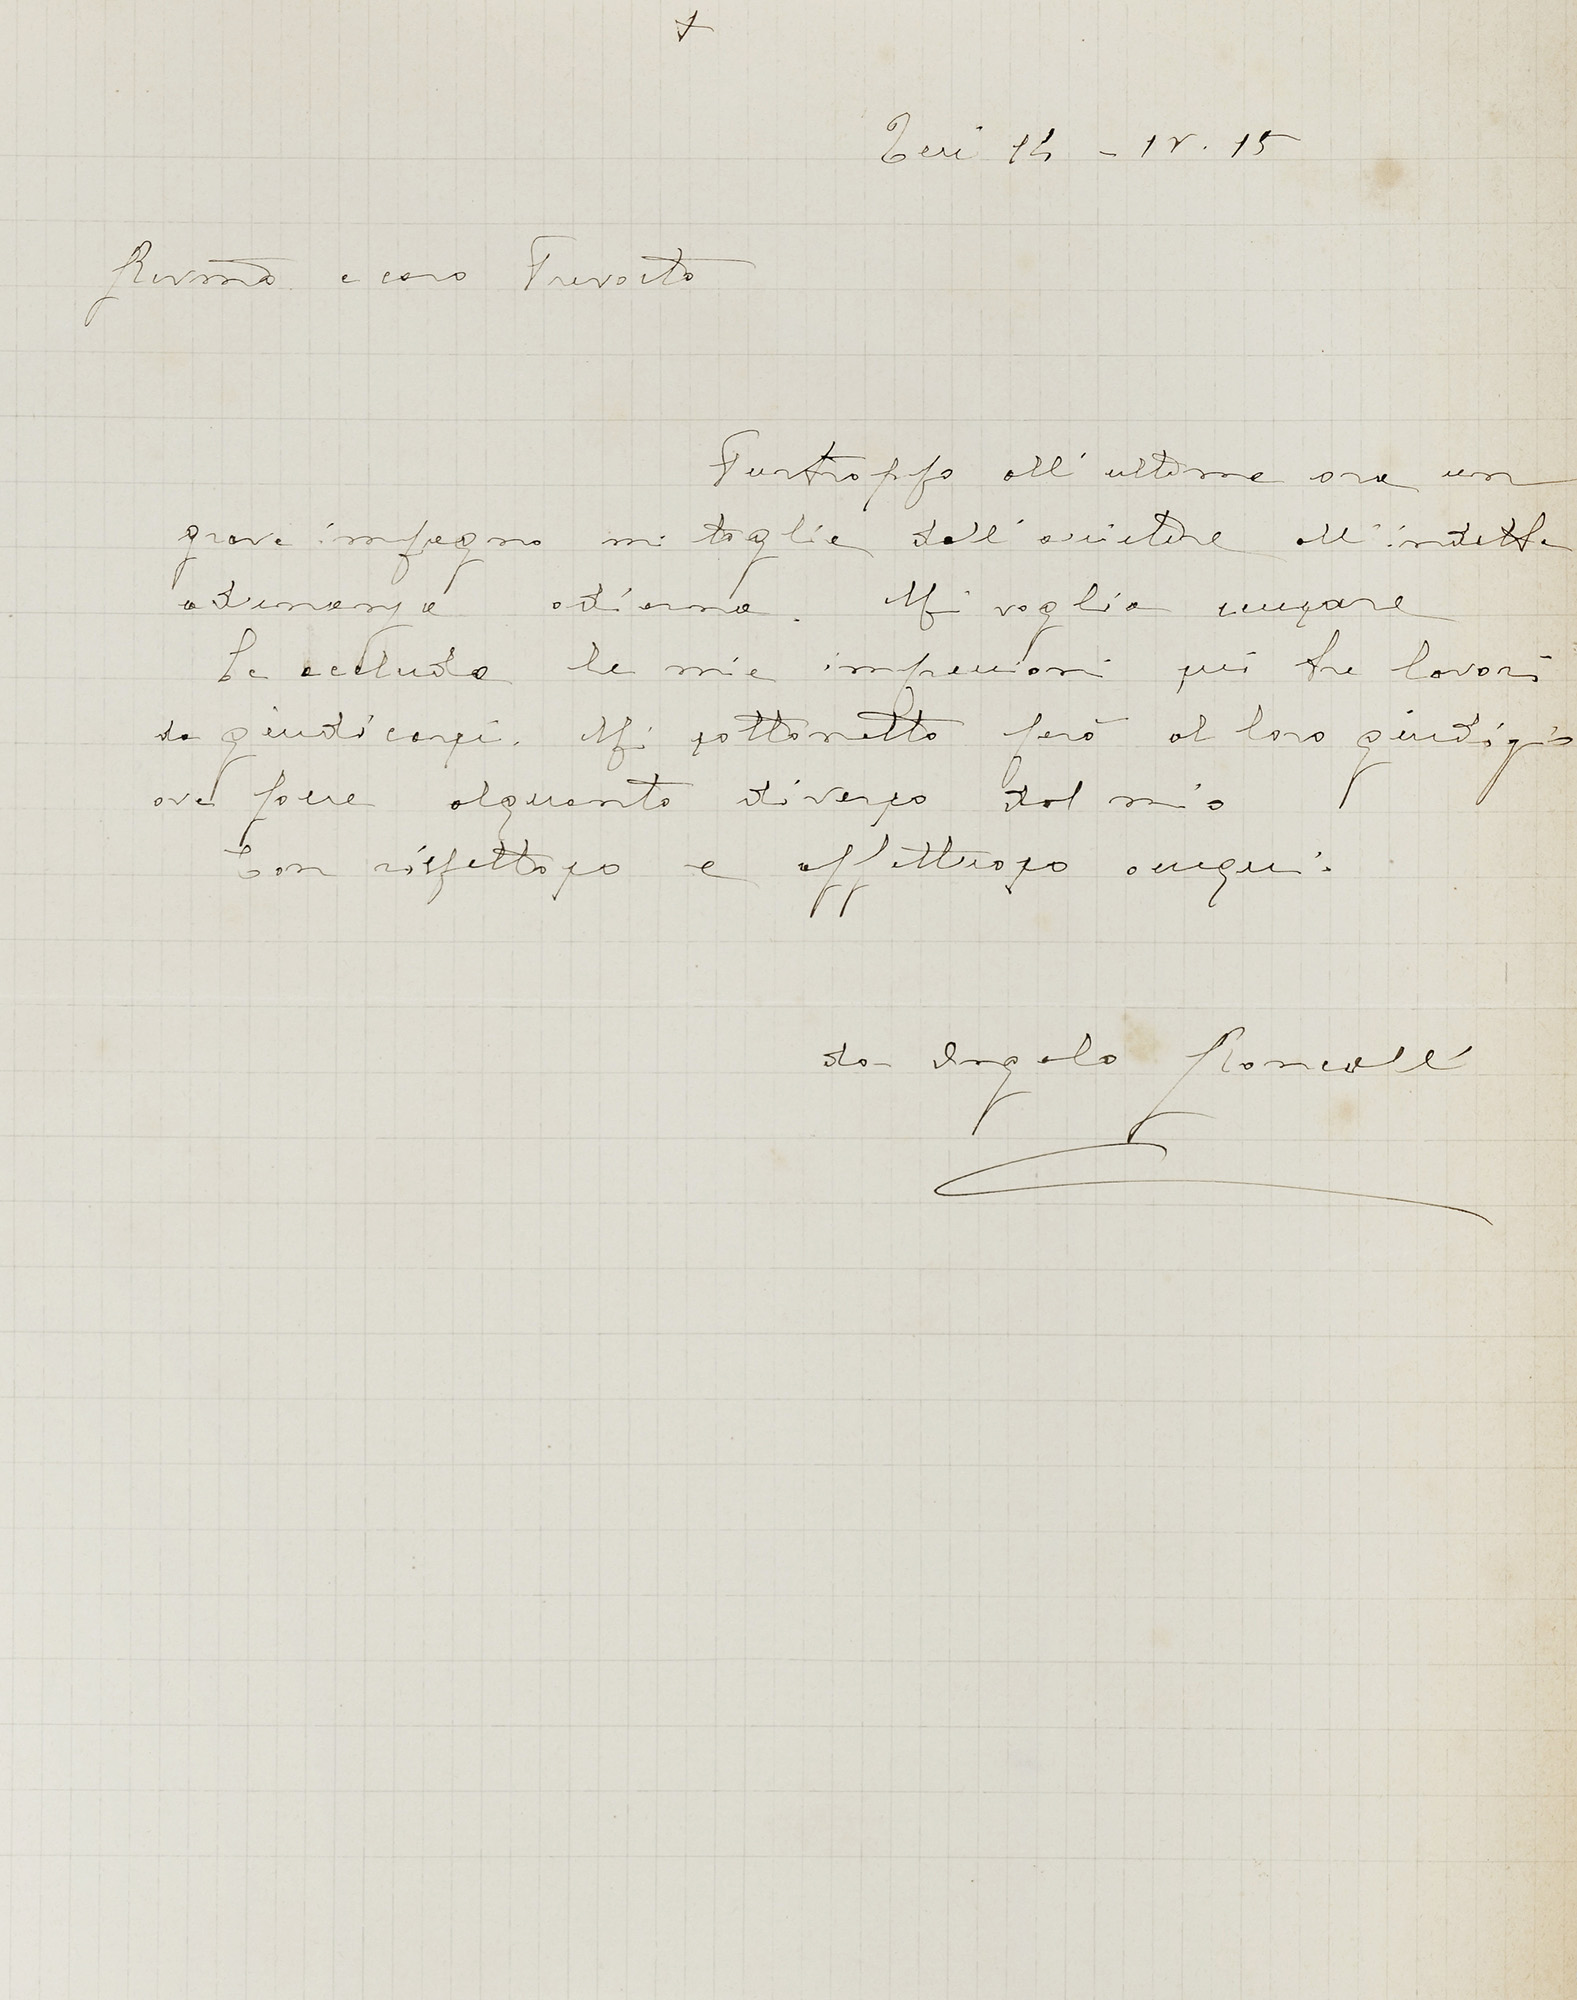 +
14 - IV. 15
Rev.mo e caro Prevosto
Purtroppo all'ultima ora un
grave impegno mi toglie dall'assistere all'indetta
adunanza odierna. Mi voglia scusare
Le accludo le mie impressioni sui tre lavori
da giudicarsi. Mi sottometto però al loro giudizio
ove fosse alquanto diverso dal mio
Con rispettoso e affettuoso ossequi.
Angelo Roncalli